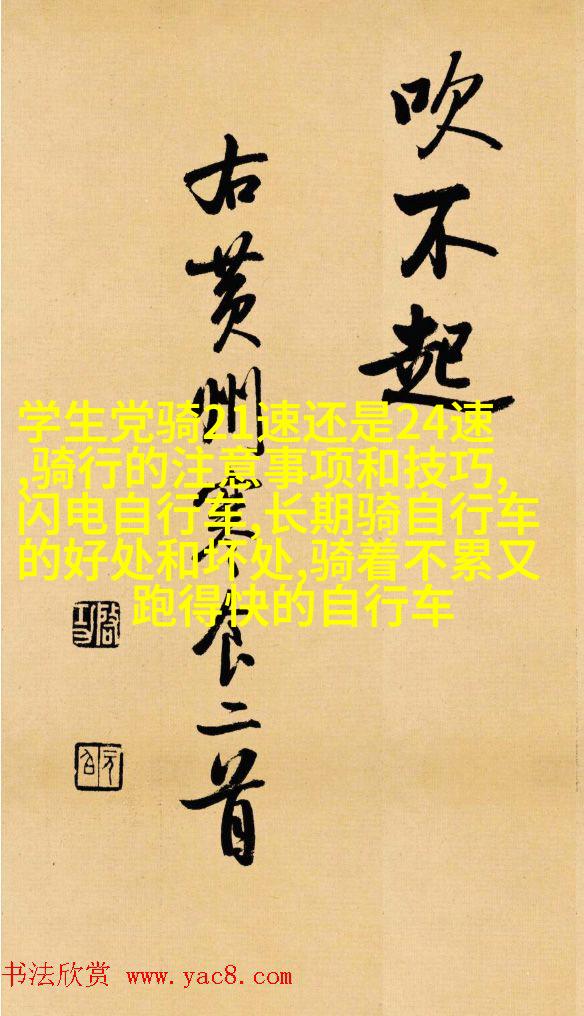 吹不起
右黄州寒食二首
学生党骑21速还是24速
,骑行的注意事项和技巧,
闪电自行车,长期骑自行车
的好处和坏处,骑着不累又
跑得快的自行车
书法欣赏 www.yac8.com